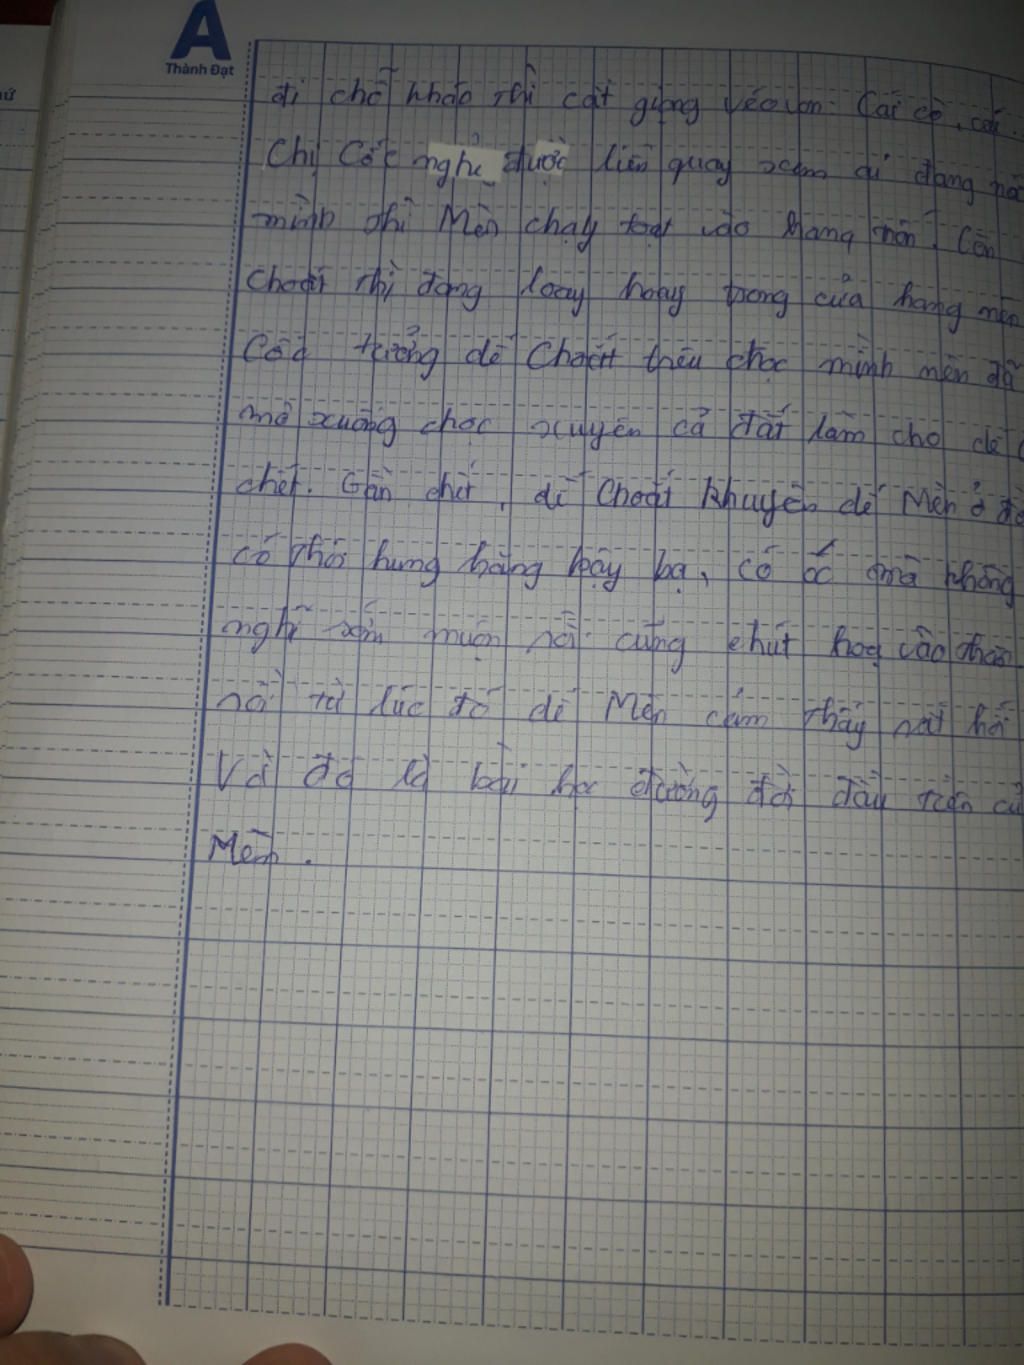 A
Thành Đạt
đi chỗ khác thì cất giọng véo von: Cái cò, cái
Chị Cốc nghe được liền quay xem ai đang nói
mình thì Mèn chạy tọt vào hang trốn. Còn
Choắt thì đang loay hoay trong cửa hang nên
Cốc tưởng dế Choắt trêu chọc mình nên đã
mổ xuống chọc xuyên cả đất làm cho dế
chết. Gần chết, dế Choắt khuyên dế Mèn ở
có thói hung hăng bậy bạ, có óc mà không
nghĩ sớm muộn rồi cũng chút hoạ vào thân
rồi từ lúc đó dế Mèn cảm thấy rất hối
Và đó là bài học đường đời đầu tiên
Mèn.